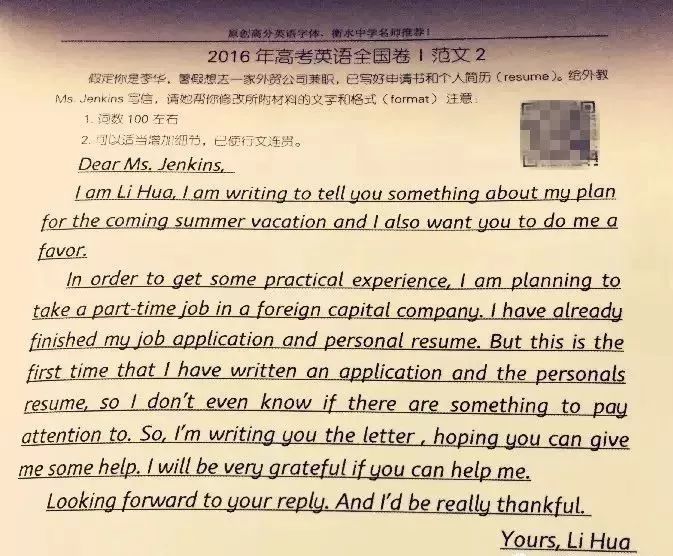 原创高分英语字体,衡水中学名师推荐!
2016年高考英语全国卷 I 范文2
假定你是李华,暑假想去一家外贸公司兼职,已写好申请书和个人简历(resume)。给外教
Ms. Jenkins 写信,请她帮你修改所附材料的文字和格式(format)注意:
1. 词数 100 左右
2. 可以适当增加细节,已使行文连贯。
Dear Ms. Jenkins,
I am Li Hua, I am writing to tell you something about my plan
for the coming summer vacation and I also want you to do me a
favor.
In order to get some practical experience, I am planning to
take a part-time job in a foreign capital company. I have already
finished my job application and personal resume. But this is the
first time that I have written an application and the personals
resume, so I don't even know if there are something to pay
attention to. So, I'm writing you the letter , hoping you can give
me some help. I will be very grateful if you can help me.
Looking forward to your reply. And I'd be really thankful.
Yours, Li Hua